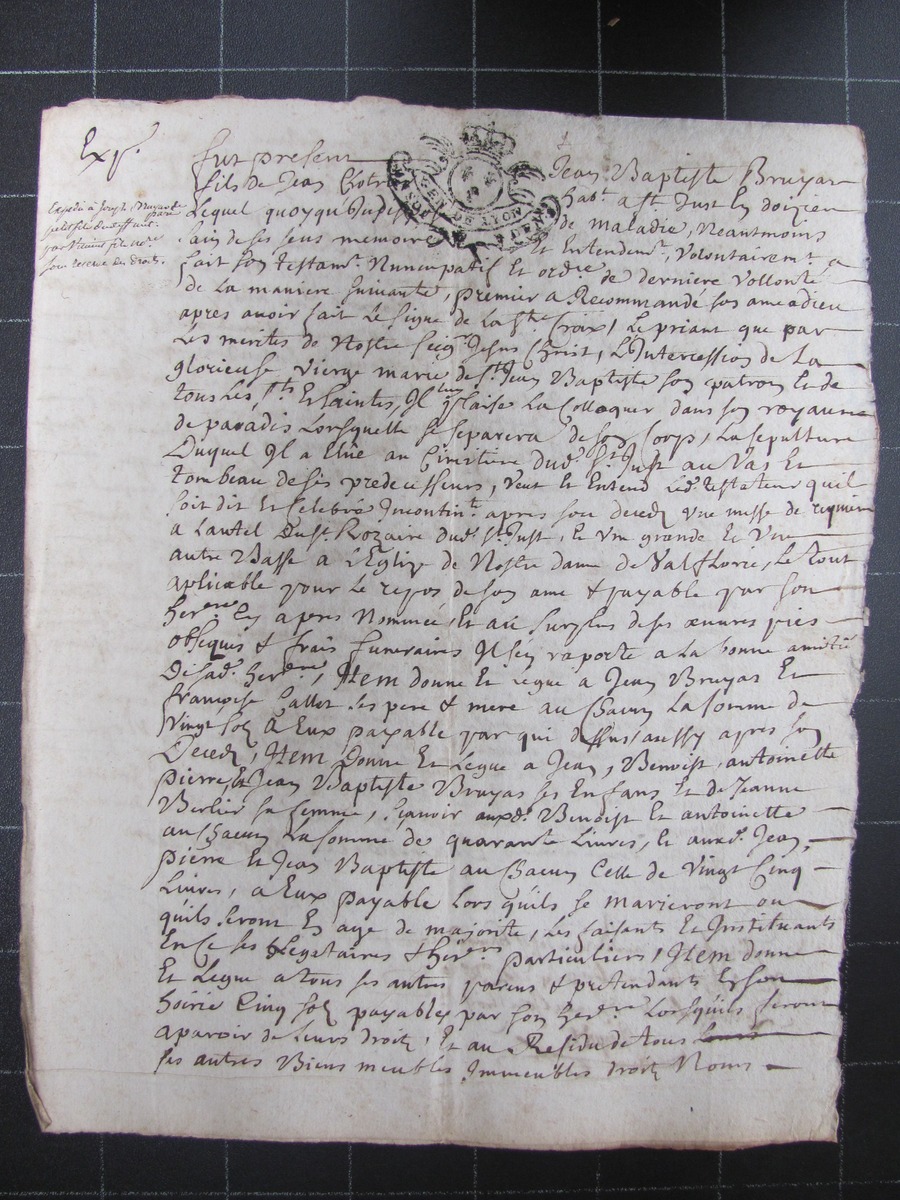 Exp.
Expedié à Joseph Bruyas
petit fils
par Vincent fils no.re
sous reserve des droits.
GEN DE LYON
Fut present Jean Baptiste Bruyas
fils de Jean hab.t a St Just les doizieu
Lequel quoyqu'Indisp de maladie, Neantmoins
sain de ses sens memoire Et Entendem.t, Volontairem.t a
fait son testam.t Nuncupatif Et ord.re de derniere Vollonté
de la maniere suivante, premier a Recommandé son ame a dieu
apres avoir fait Le signe de La s.te Croix, Le priant que par
Les merites de Nostre seig.r Jesus Christ, L'Intercession de La
glorieuse Vierge marie de s.t Jean Baptiste son patron Et de
tous Les s.ts Et saintes, Il luy plaise La Colloquer dans son royaume
de paradis Lorsquelle se separera de son Corps, La sepulture
Duquel Il a Elüe au Cimetiere dud. s.t Just au Vas Et
tombeau de ses predecesseurs, Veut Et Entend Led. testateur quil
soit dit Et Celebré Incontin.t apres son decedz Une messe de requiem
a Lautel du s.t Rozaire dud. s.t Just, Et Une grande Et Une
autre Basse a L'Eglize de Nostre dame de Valflorie, Le Tout
aplicable pour Le repos de son ame & payable par son
her.ere Cy apres Nommée, Et au surplus de ses œuvres pies
obseques & frais funeraires Il s'en raporte a La bonne amitié
De sad. her.ere, Item donne Et Legue a Jean Bruyas Et
françoise Gallet ses pere & mere au Chacun La somme de
Vingt solz a Eux payable par qui dessus aussy apres son
Decedz, Item Donne Et Legue a Jean, Benoist, antoinette
pierre Et Jean Baptiste Bruyas ses Enfans Et de Jeanne
Berlier sa femme, sçavoir auxd. Benoist Et antoinette
au Chacun La somme de quarante Livres, Et auxd. Jean,
pierre Et Jean Baptiste au Chacun Celle de Vingt Cinq
Livres, a Eux payable Lors qu'ils se marieront ou
qu'ils seront En age de majorité, Les faisants Et Instituants
En Ce ses Legataires & her.ers particuliers, Item donne
Et Legue a tous ses autres parens & pretendants En son
hoirie Cinq solz payables par son her.ere Lorsqu'ils seront
aparoir de Leurs droitz, Et au Residu de tous
ses autres Biens meubles Immeubles droitz Noms